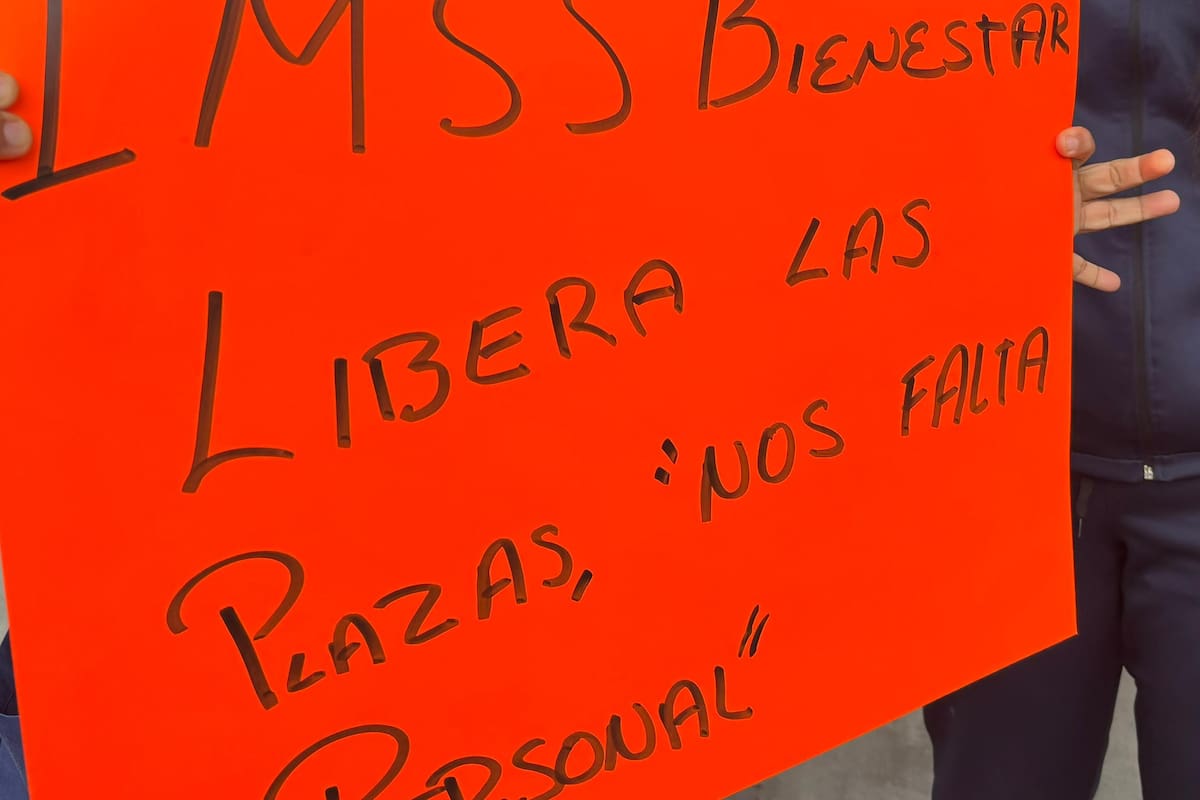 IMSS BIENESTAR
LIBERA LAS
PLAZAS, "NOS FALTA
PERSONAL"